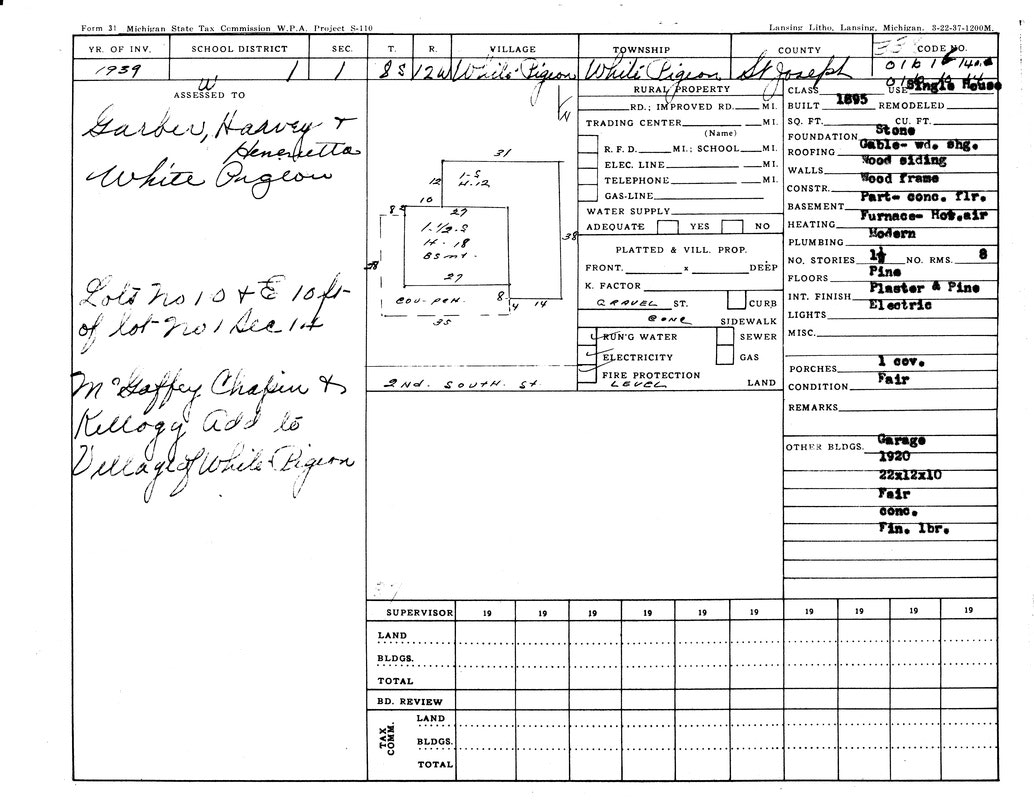 Form 31 Michigan State Tax Commission W.P.A. Project S-110
Lansing Litho, Lansing, Michigan. 3-22-37-1200M.
YR. OF INV. SCHOOL DISTRICT SEC. T. R. VILLAGE TOWNSHIP COUNTY CODE NO.
1939 W 1 1 8S 12W White Pigeon White Pigeon St Joseph
ASSESSED TO
Garber, Harvey +
Henrietta
White Pigeon
Lots No 10 & E 10 ft
of lot no 1 Sec 14
McGaffey Chapin &
Kellogg Add to
Village of White Pigeon
N
31
12
1-S
H.12
10
8
27
1-1/2-S
H-18
Bsmt.
38
27
COV-PCH.
8
4 14
35
2ND. SOUTH. ST
RURAL PROPERTY
RD.; IMPROVED RD. MI.
TRADING CENTER MI.
(Name)
R. F. D. MI.; SCHOOL MI.
ELEC. LINE MI.
TELEPHONE MI.
GAS-LINE
WATER SUPPLY
ADEQUATE YES NO
PLATTED & VILL. PROP.
FRONT. x DEEP
K. FACTOR
GRAVEL ST. CURB
CONC SIDEWALK
RUN'G WATER SEWER
ELECTRICITY GAS
FIRE PROTECTION
LEVEL LAND
CLASS USE Single House
BUILT 1895 REMODELED
SQ. FT. CU. FT.
FOUNDATION Stone
ROOFING Gable- wd. shg.
WALLS Wood siding
CONSTR. Wood frame
BASEMENT Part- conc. flr.
HEATING Furnace- Hot.air
PLUMBING Modern
NO. STORIES 1½ NO. RMS. 8
FLOORS Pine
INT. FINISH Plaster & Pine
LIGHTS Electric
MISC.
PORCHES 1 cov.
CONDITION Fair
REMARKS
OTHER BLDGS. Garage
1920
22x12x10
Fair
conc.
Fin. lbr.
SUPERVISOR 19 19 19 19 19 19 19 19 19
LAND
BLDGS.
TOTAL
BD. REVIEW
TAX COMM.
LAND
BLDGS.
TOTAL